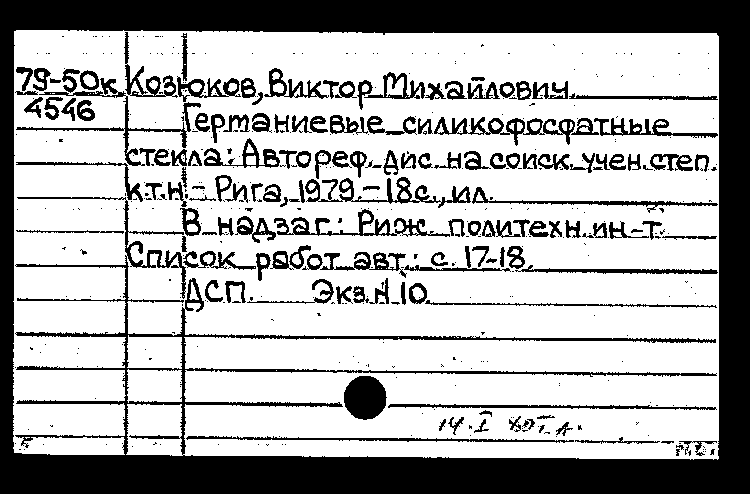 79-50к Козюков, Виктор Михайлович.
4546 Германиевые силикофосфатные
стекла: Автореф. дис. на соиск. учен. степ.
к.т.н. - Рига, 1979. - 18 с., ил.
В надзаг.: Риж. политехн. ин-т.
Список работ авт.: с. 17-18.
ДСП. Экз. N 10
14. I 80